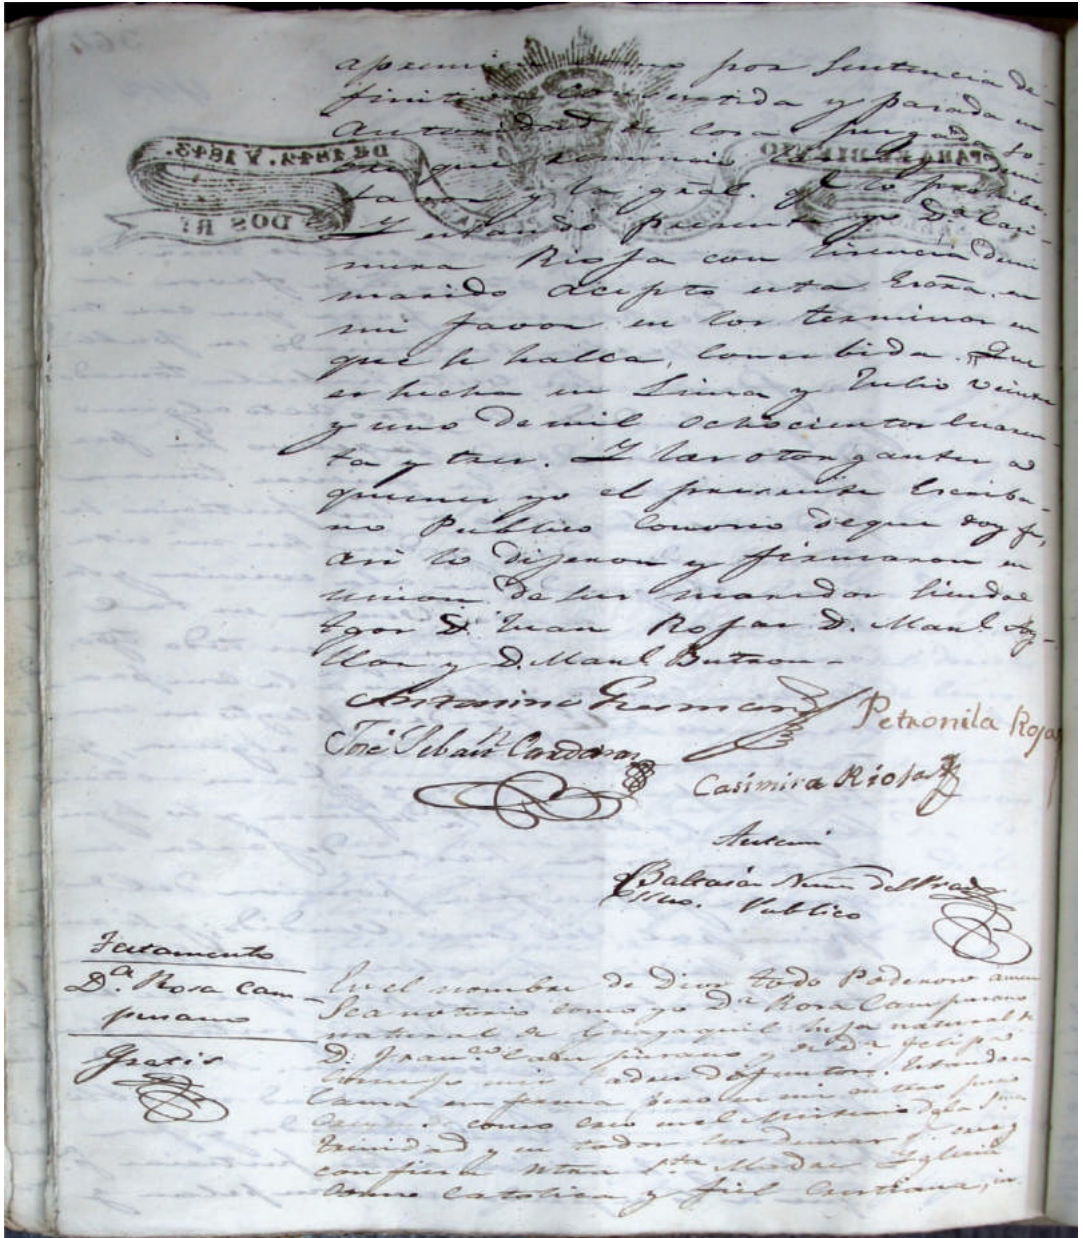 apremien como por Sentencia de-
finitiva consentida y pasada en
autoridad de cosa Juzgada so-
bre que renuncio las Leyes demi
favor y la gral. qe. lo prohibe.
Y estando presente yo Da. Casi-
mira Rioja con licencia demi
marido acepto esta Escra. en
mi favor en los terminos en
que se halla, concebida. Que
es hecha en Lima y Julio veinte
y uno de mil ochocientos cuaren-
ta y tres. Y las otorgantes a
quienes yo el presente Escriba-
no Publico conosco deque doy fe,
asi lo dijeron y firmaron en
union de sus maridos siendo
tgos D. Juan Rojas D. Manl.
llon y D. Manl. Butron -
Antonina Guzman Petronila Rojas
José Seban. Cardenas
Casimira Rioja
Antemi
Baltasar Nuñ del Prado
Essno. Publico
Testamento
Da. Rosa Cam-
pusano
Gratis
En el nombre de Dios todo Poderoso amen
Sea notorio como yo Da. Rosa Campusano
natural de Guayaquil hija natural de
D. Franco. Campusano y de Da. Felipa
Cornejo mis Padres difuntos. Estando en
cama enferma pero en mi entero juicio
Creyendo como creo en el Misterio dela Sma.
Trinidad y en todos los demas qe. cree y
confiesa ntra Sta. Madre Yglesia
como catolica y fiel Cristiana, in
DE 1842. Y 1843.
PARA EL BIENIO
DOS Rs.
364